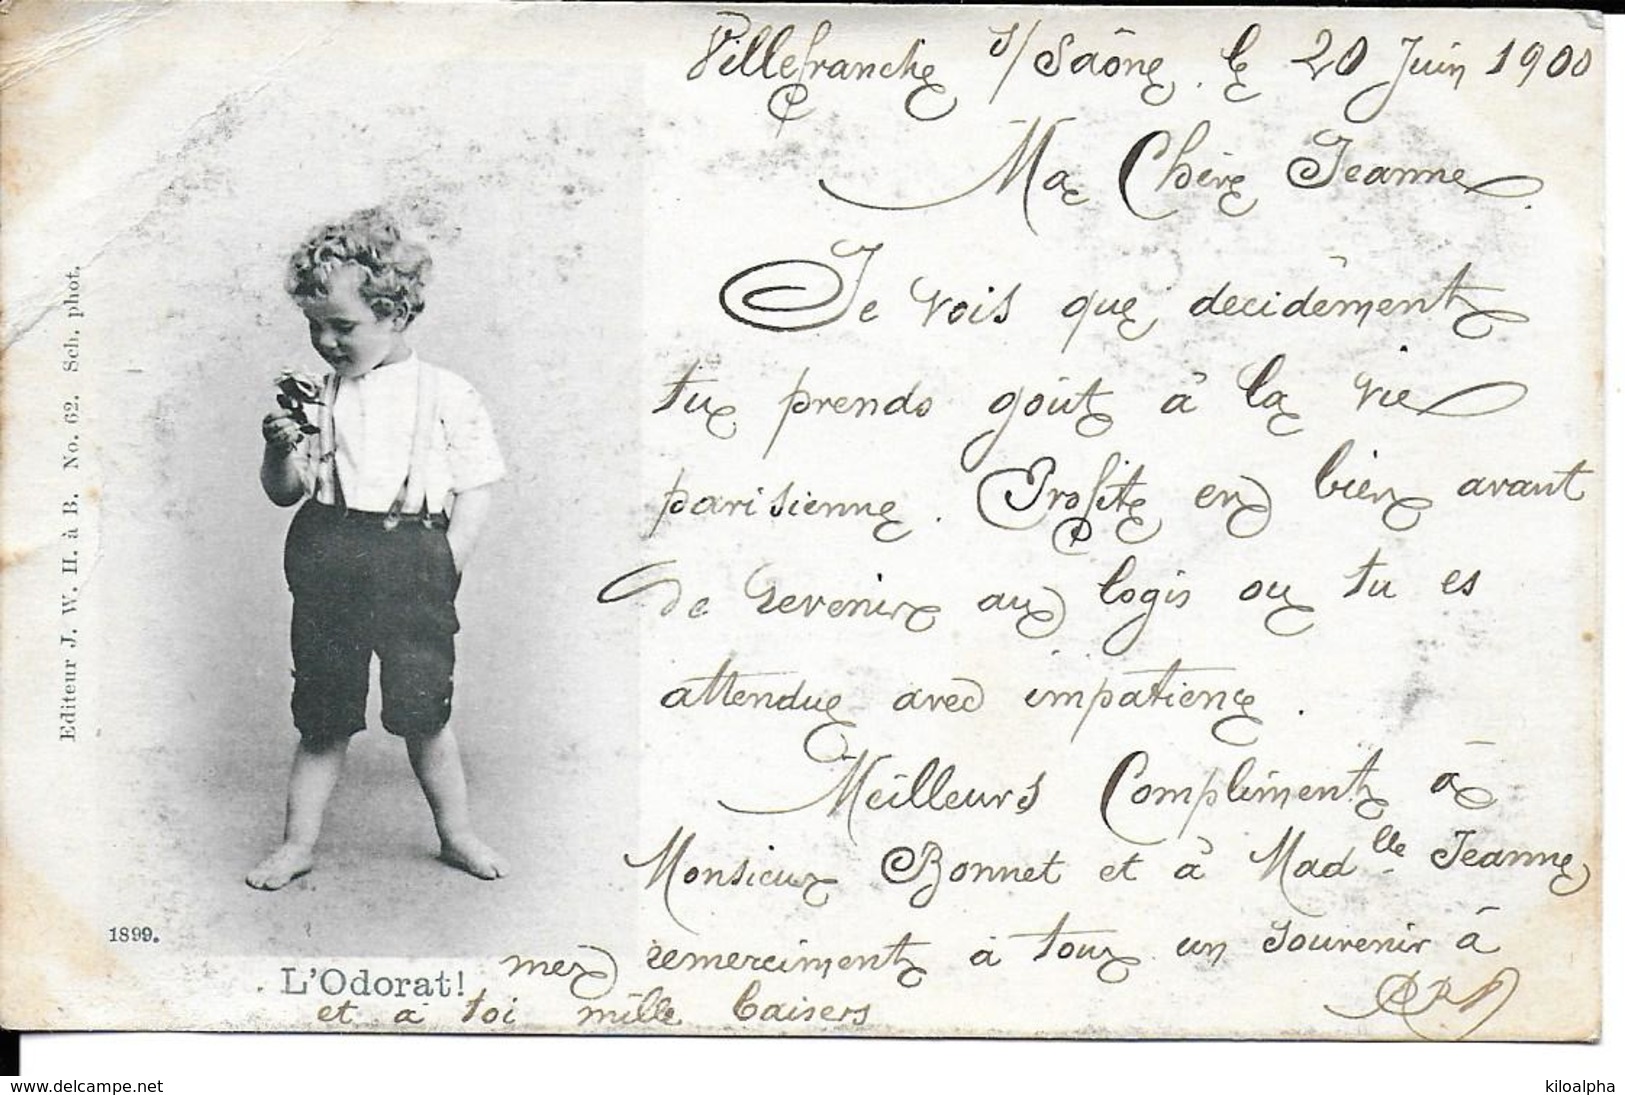 Villefranche s/ Saône. le 20 Juin 1900
Ma Chère Jeanne.
Je vois que decidêment
tu prends goût à la vie
parisienne. Profite en bien avant
de revenir au logis ou tu es
attendue avec impatience.
Meilleurs Compliments à
Monsieur Bonnet et à Madlle Jeanne
mes remerciments à tous un souvenir à
et à toi mille baisers
Editeur J. W. H. à B. No. 62. Sch. phot.
1899.
L'Odorat!
www.delcampe.net
kiloalpha